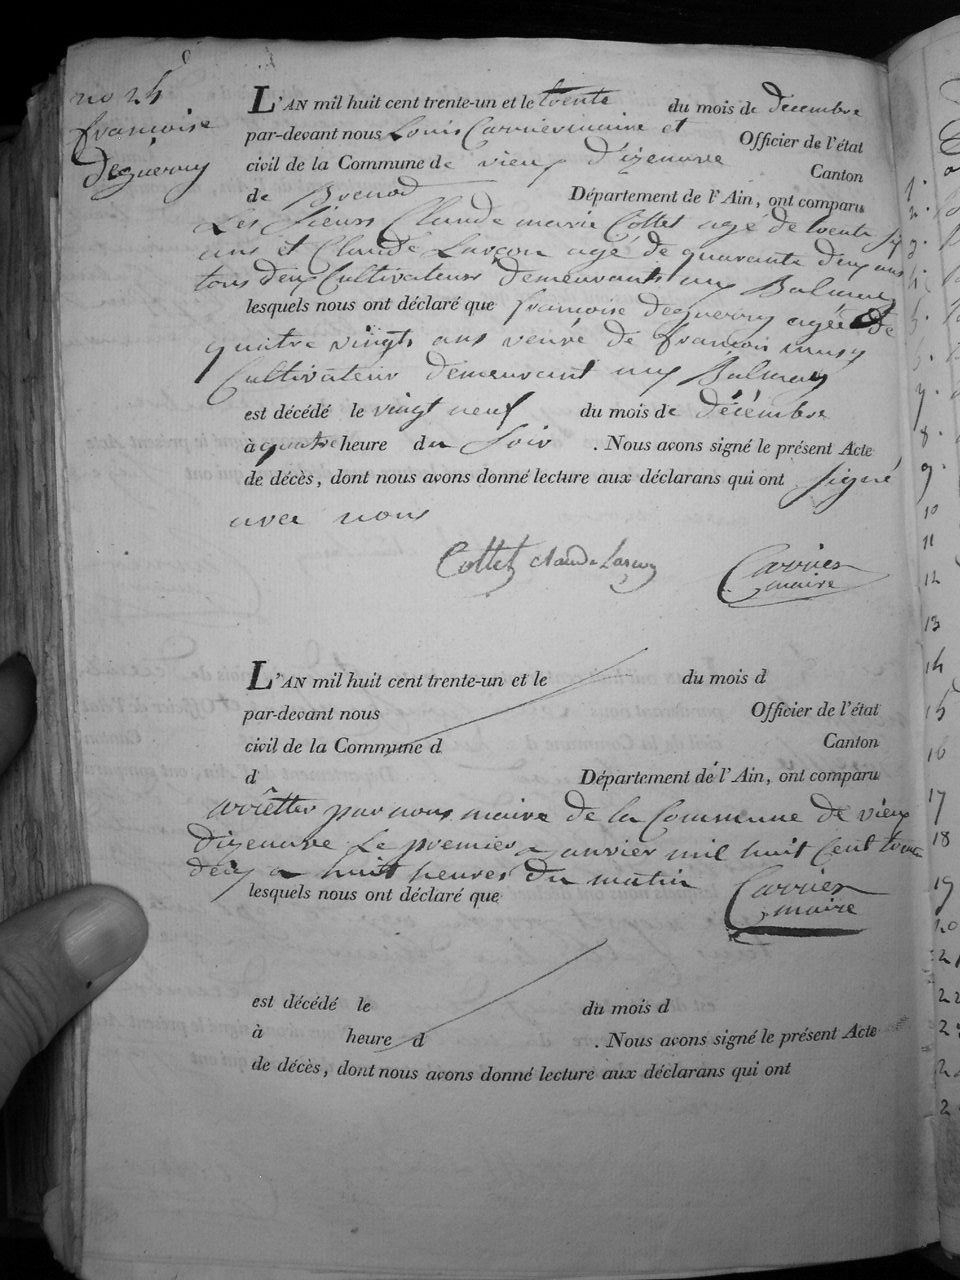 no 24
françoise
deguerry
L'AN mil huit cent trente-un et le trente du mois de décembre
par-devant nous Louis Carrier maire et Officier de l'état
civil de la Commune de vieux d'izenave Canton
de Brenod Département de l'Ain, ont comparu
Les sieurs Claude marie Cottet agé de trente
ans et Claude Larçon agé de quarante deux ans
tous deux Cultivateurs demeurants aux Balmay
lesquels nous ont déclaré que françoise deguerry agée de
quatre vingts ans veuve de françois musy
Cultivateur demeurant aux Balmay
est décédé le vingt neuf du mois de décémbre
à quatre heure du Soir . Nous avons signé le présent Acte
de décès, dont nous avons donné lecture aux déclarans qui ont signé
avec nous
Cottet Claude Larçon Carrier
maire
L'AN mil huit cent trente-un et le du mois d
par-devant nous Officier de l'état
civil de la Commune d Canton
d Département de l'Ain, ont comparu
arrêtter par nous maire de la Commune de vieux
dizenave Le premier janvier mil huit Cent trente
deux a huit heures du matin
lesquels nous ont déclaré que Carrier
maire
est décédé le du mois d
à heure d . Nous avons signé le présent Acte
de décès, dont nous avons donné lecture aux déclarans qui ont
1.
2.
3.
4.
5.
6.
7.
8.
9.
10
11
12
13
14
15
16
17
18
19
20